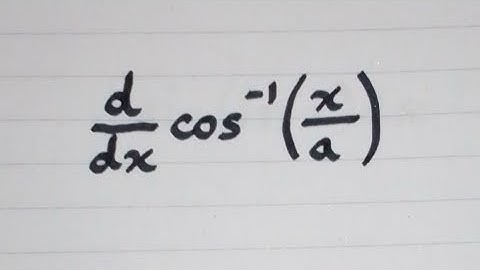 d/dx cos⁻¹(x/a)